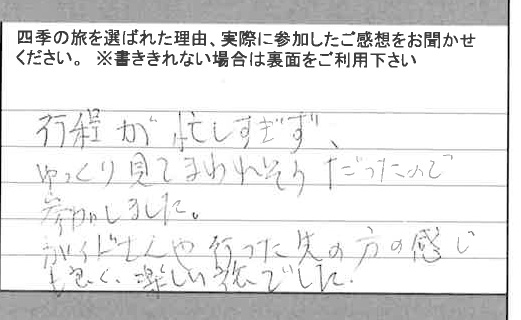 四季の旅を選ばれた理由、実際に参加したご感想をお聞かせ
ください。 ※書ききれない場合は裏面をご利用下さい
行程が忙しすぎず、
ゆっくり見てまわれそうだったので
参加しました。
ガイドさんや行った先の方の感じ
も良く、楽しい旅でした。